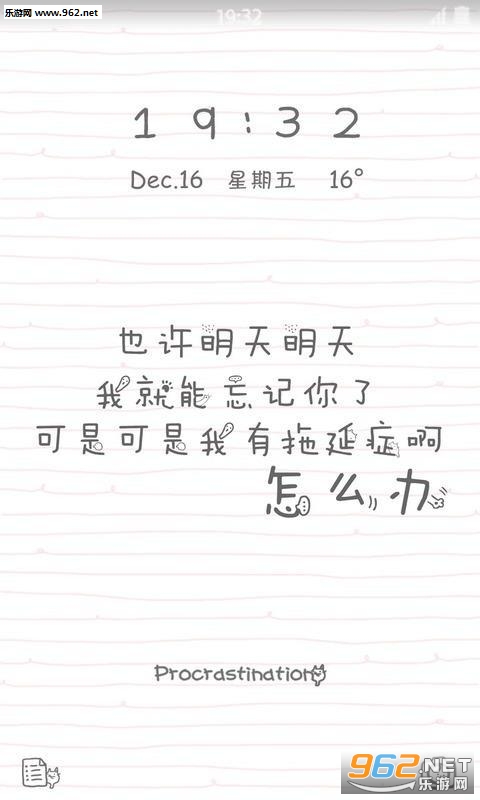 乐游网 www.962.net
19:32
19:32
Dec.16 星期五 16°
也许明天明天
我就能忘记你了
可是可是我有拖延症啊
怎么办
Procrastination
962.NET
乐游网